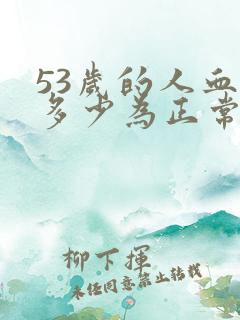 53歲的人血
多少為正常
柳下揮
未经同意禁止转载